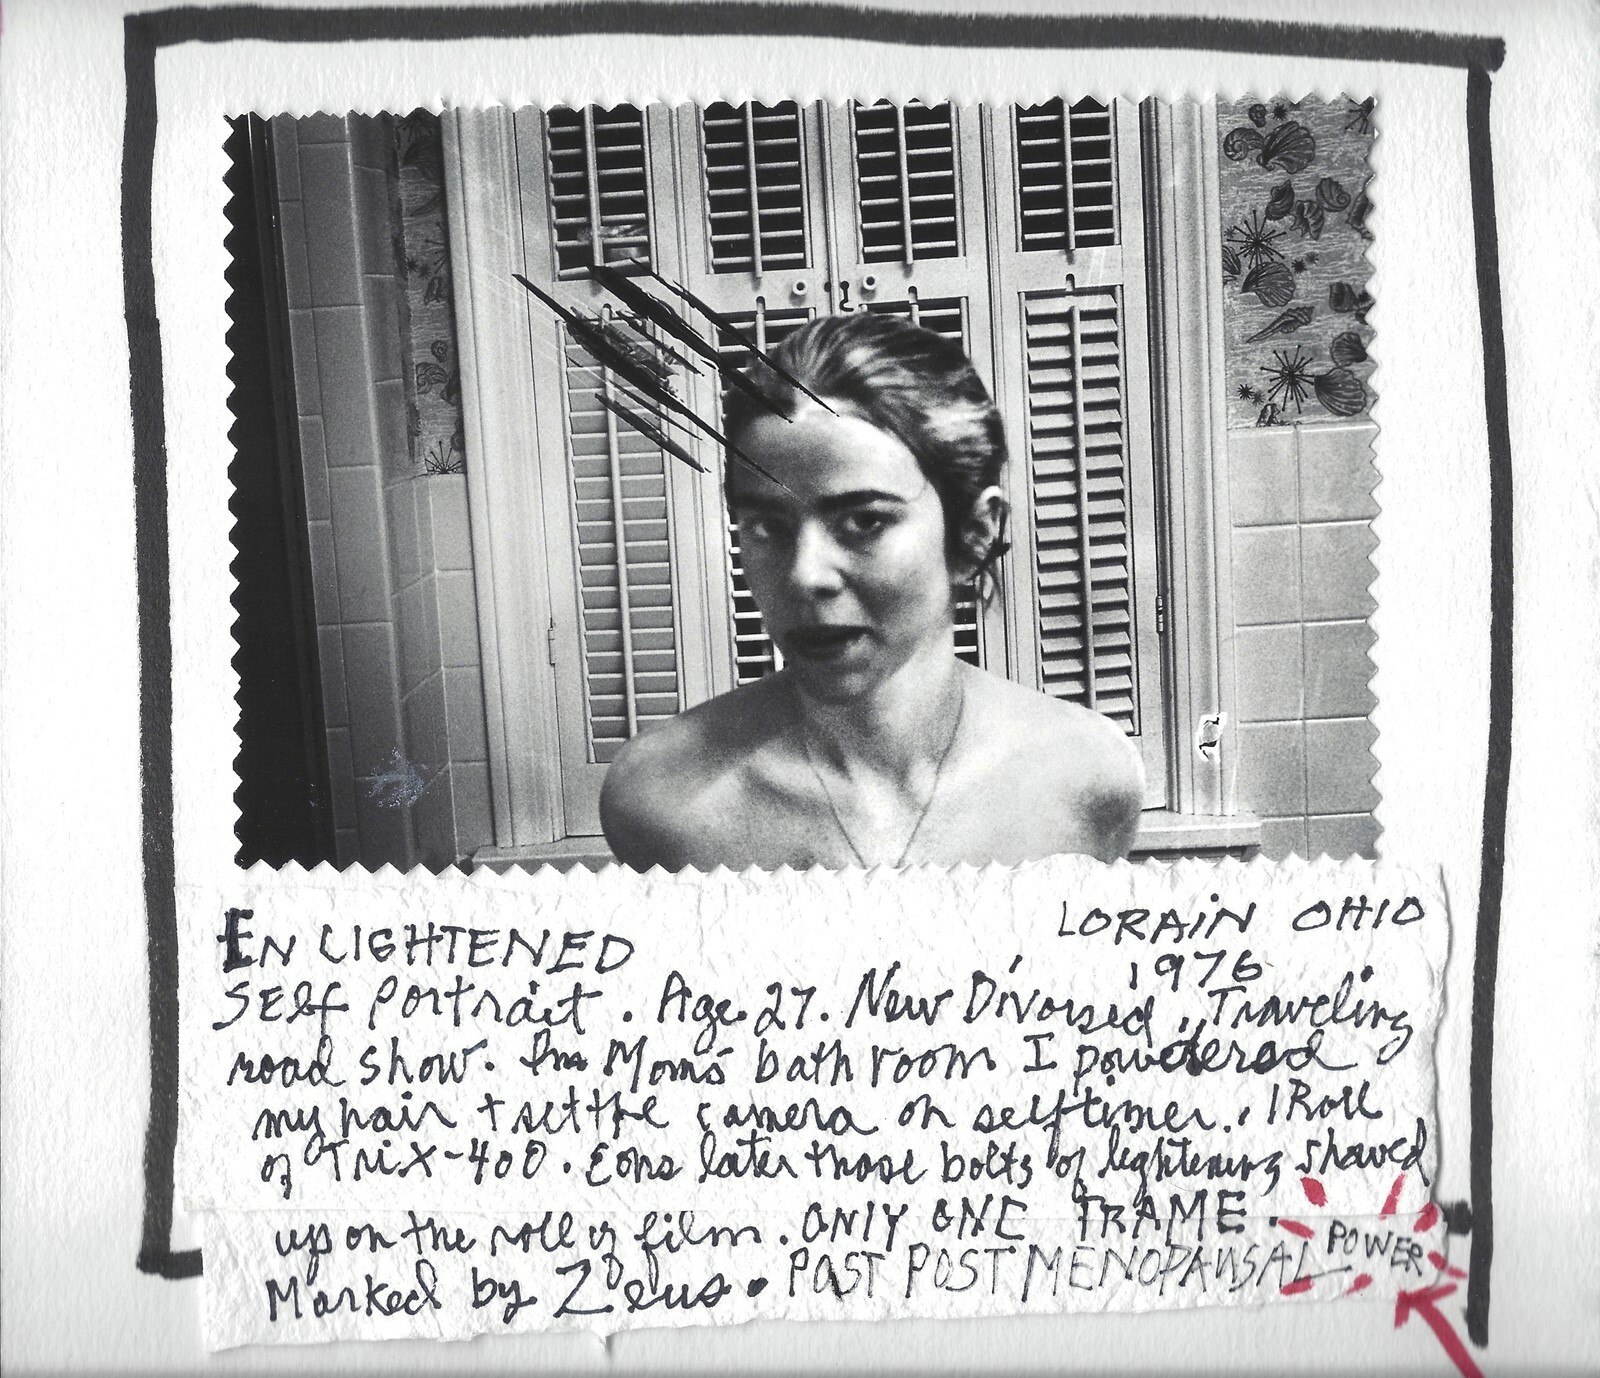 EN LIGHTENED
LORAIN OHIO
1976
Self Portrait. Age 27. New Divorsed. Traveling
road show. In Mom's bathroom I powdered
my hair + set the camera on selftimer. 1 Roll
of TriX-400. Eons later those bolts of lightening showed
up on the roll of film. ONLY ONE FRAME.
Marked by Zeus. POST POST MENOPAUSAL POWER